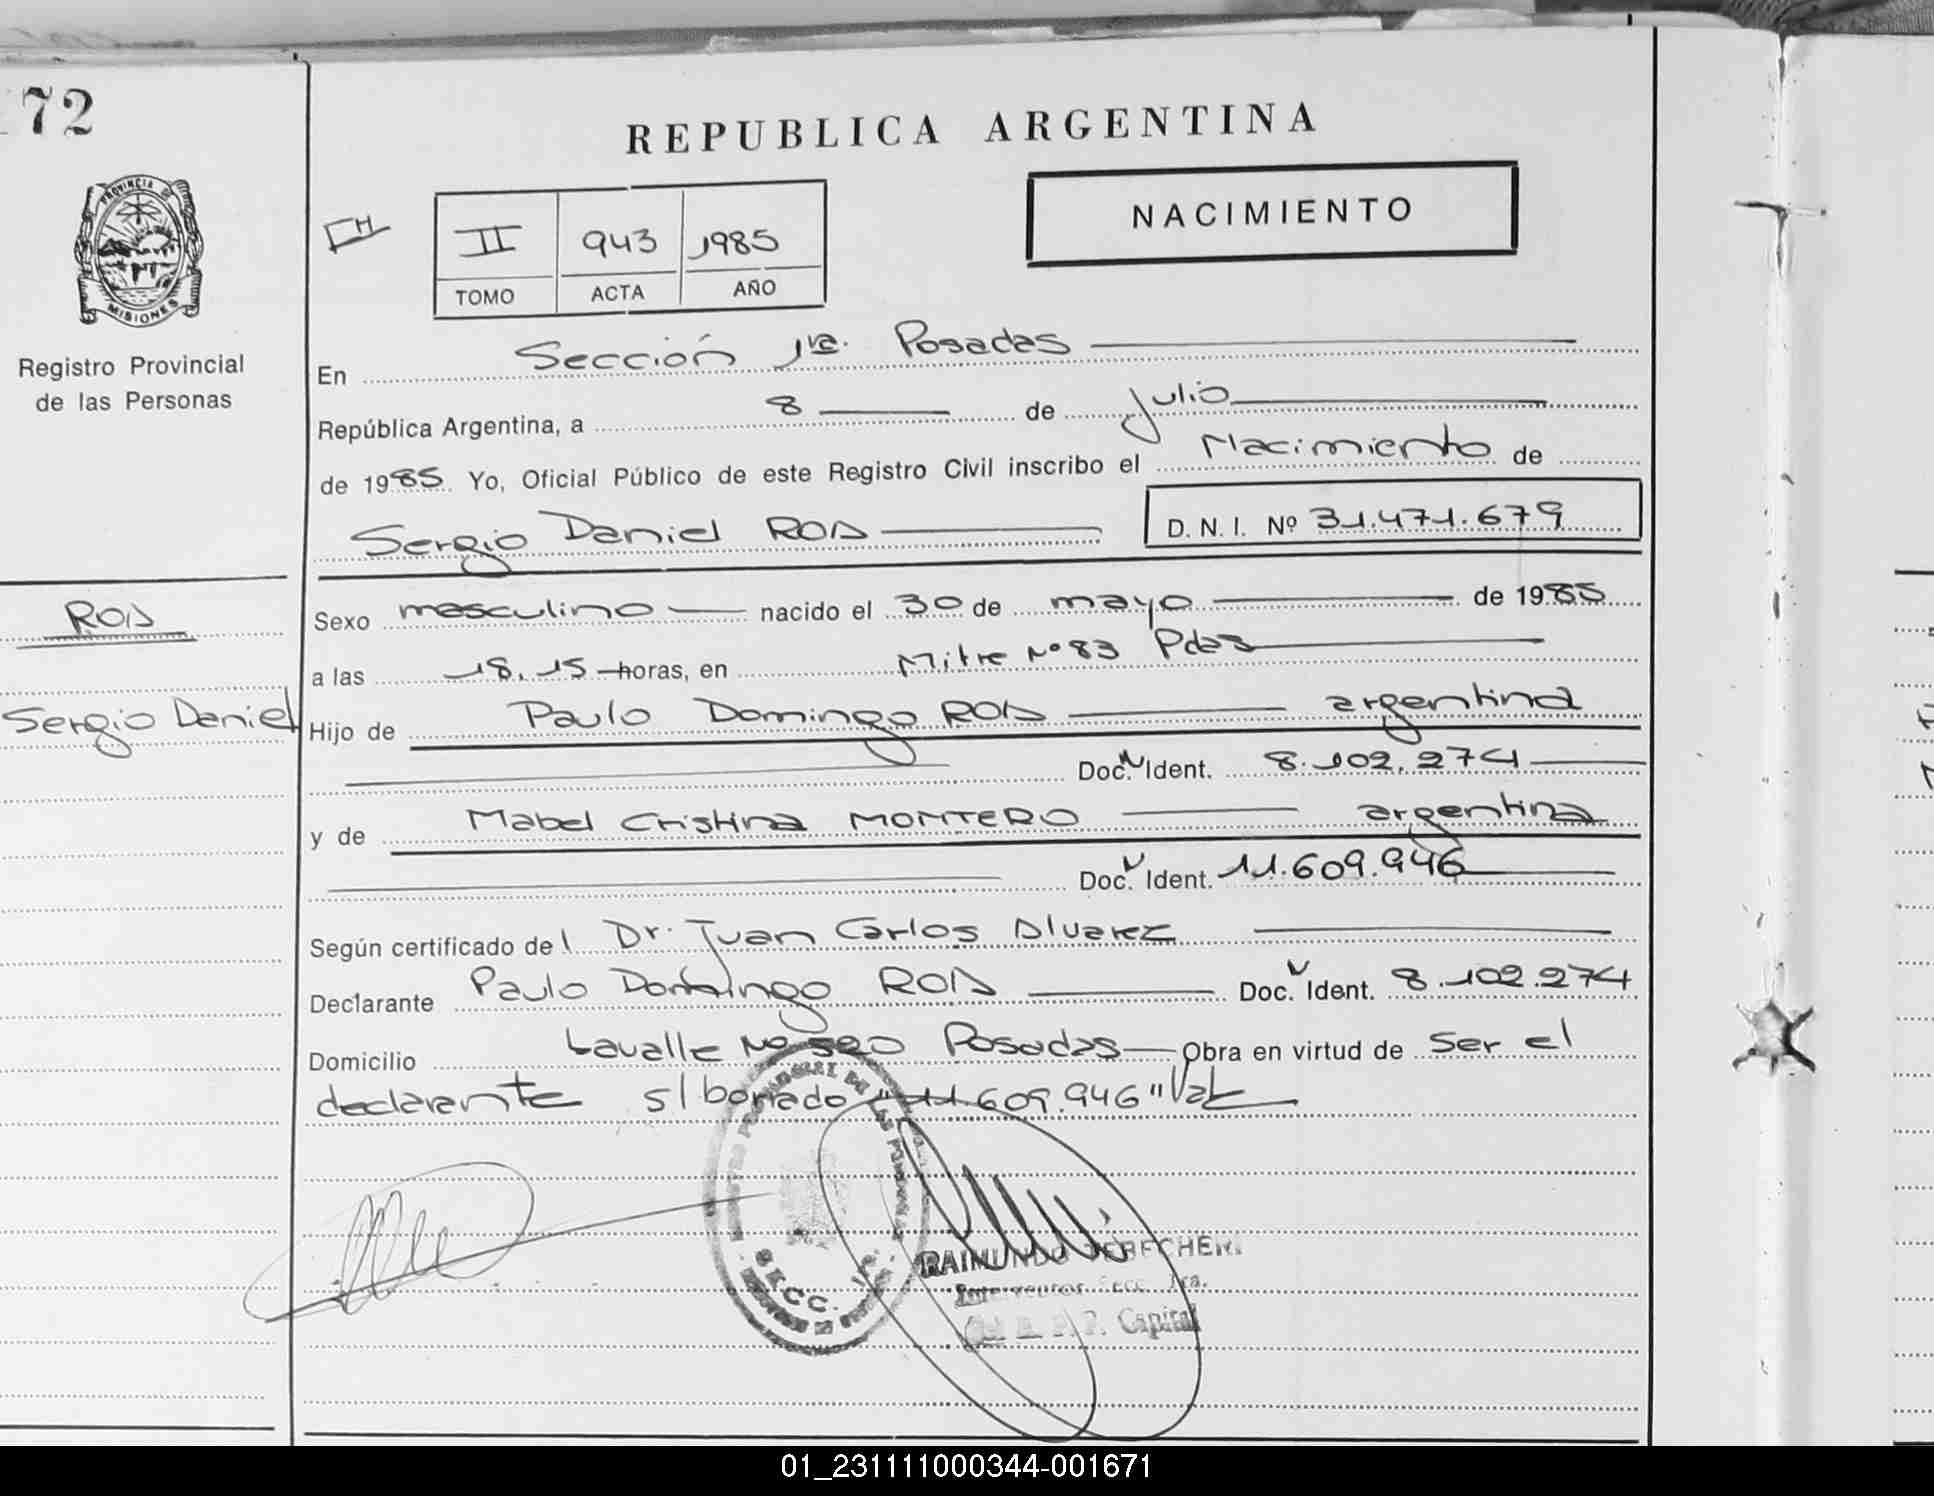 72
REPUBLICA ARGENTINA
NACIMIENTO
II 943 1985
TOMO ACTA AÑO
PROVINCIA DE
MISIONES
Registro Provincial
de las Personas
En Sección 1ra. Posadas
República Argentina, a 8 de Julio
de 1985 Yo, Oficial Público de este Registro Civil inscribo el Nacimiento de
Sergio Daniel ROA D. N. I. Nº 31.471.679
ROA
Sergio Daniel
Sexo masculino nacido el 30 de mayo de 1985
a las 18.15 horas, en Mitre Nº 83 Pdas
Hijo de Paulo Domingo ROA argentina
Doc. Ident. 8.102.274
y de Mabel Cristina MONTERO argentina
Doc. Ident. 11.609.946
Según certificado del Dr. Juan Carlos Alvarez
Declarante Paulo Domingo ROA Doc. Ident. 8.102.274
Domicilio Lavalle Nº 520 Posadas Obra en virtud de ser el
declarante s/borrado "11.609.946" Vale
RAIMUNDO
Interventor Secc. 1ra.
Capital
01_231111000344-001671